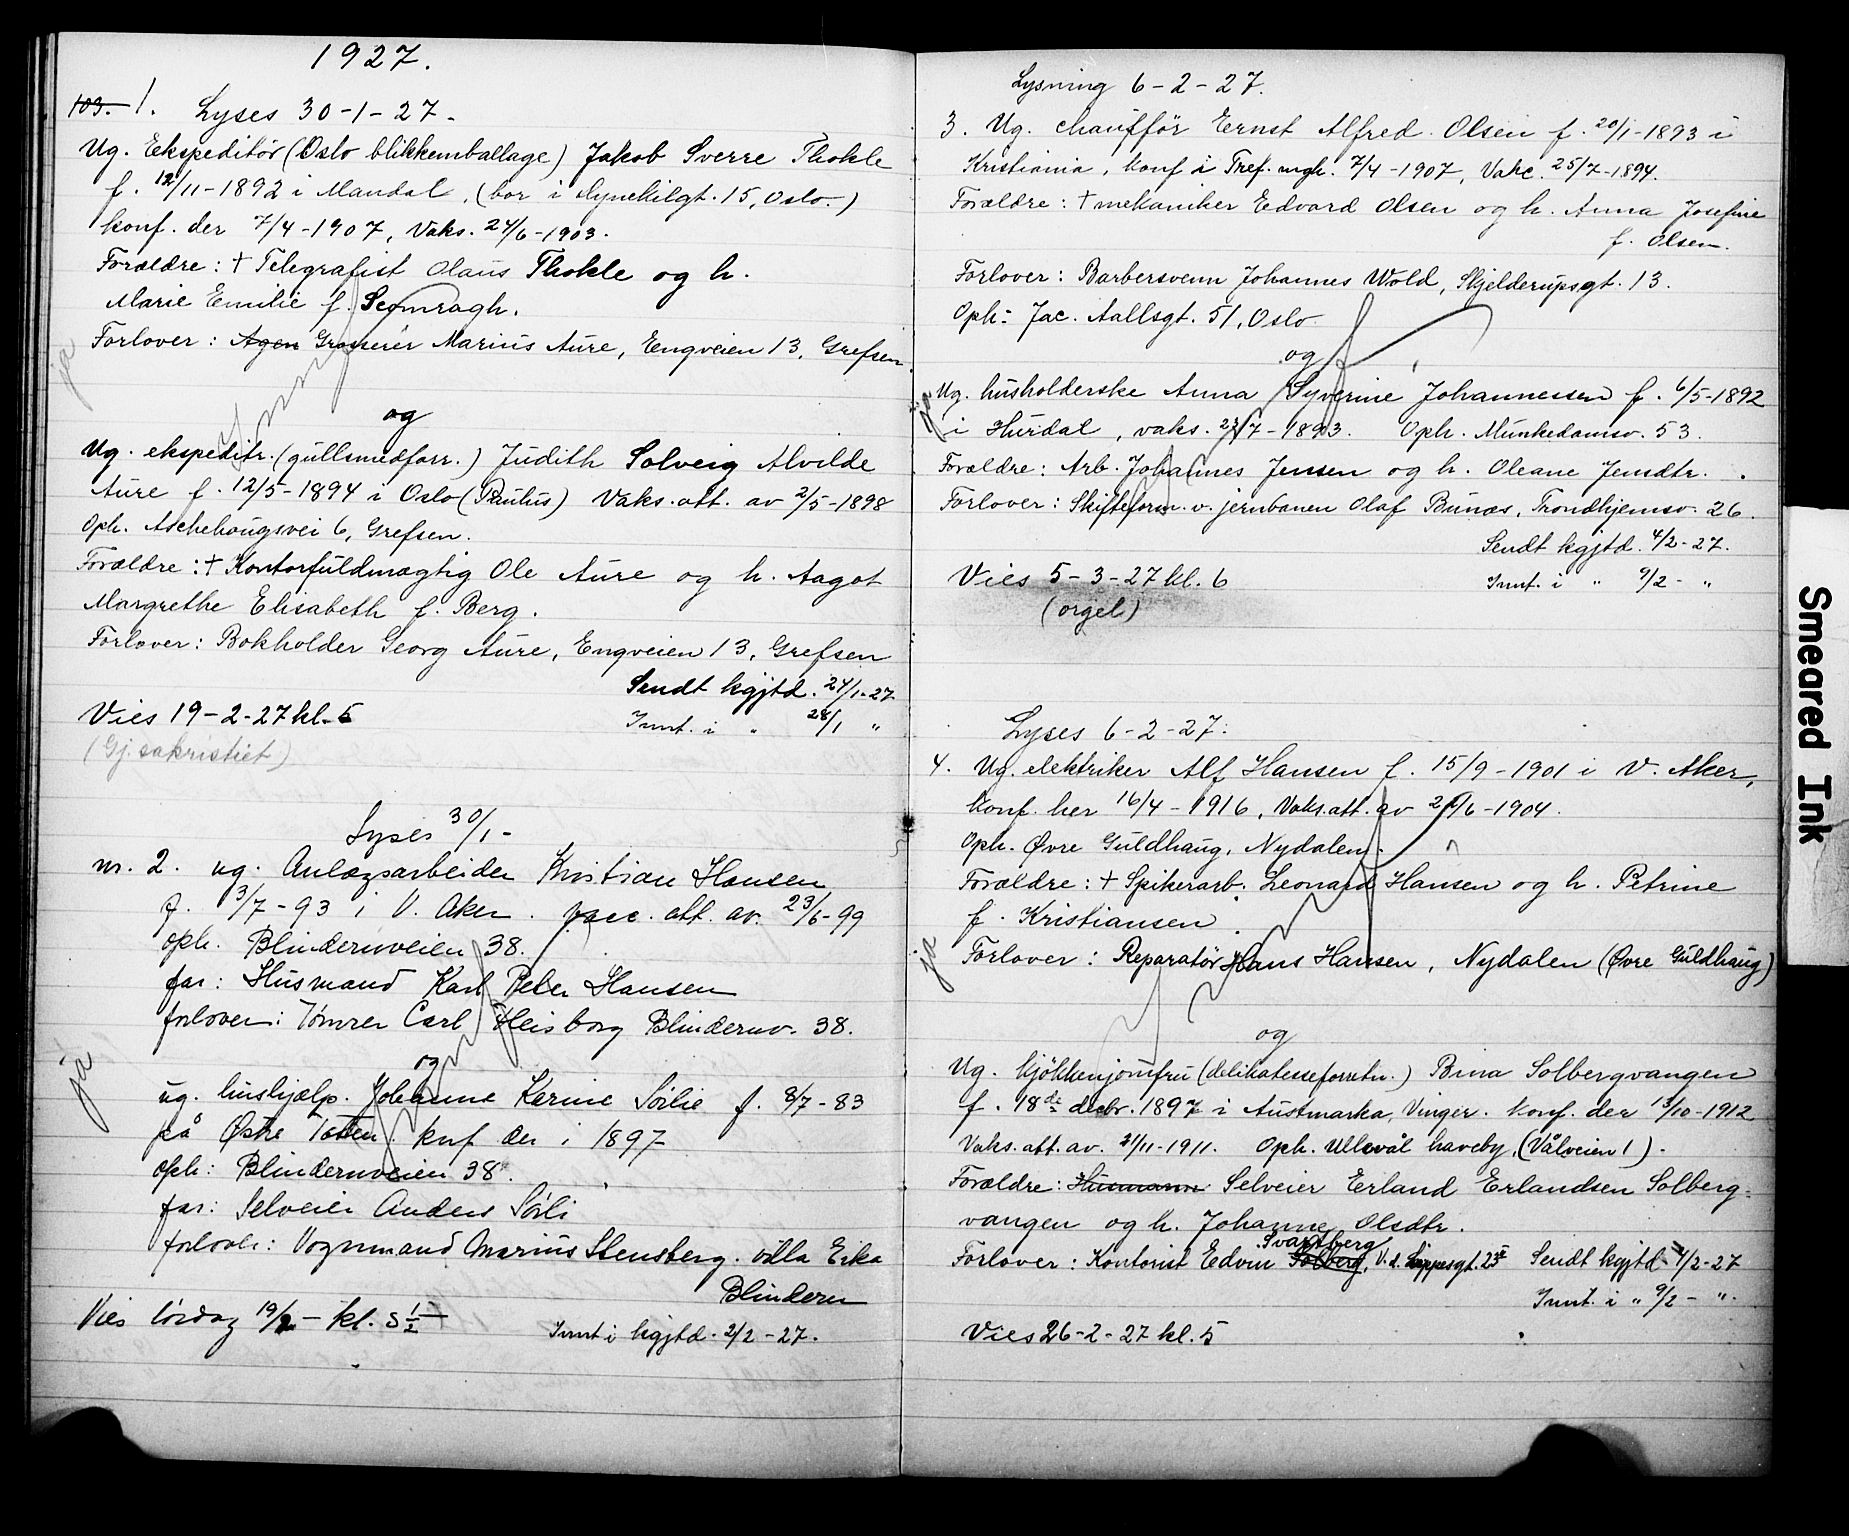 1927.
103. 1. Lyses 30-1-27.
Ug. Ekspeditör (Oslo blikkemballage) Jakob Sverre Thokle
f. 12/11-1892 i Mandal, (bor i 15, Oslo.)
konf. der 7/4-1907, Vaks. 24/6-1903.
Forældre: + Telegrafist Olaus Thokle og h.
Marie Emilie f.
Forlover: Agen Grosserer Marius Aure, Engveien 13, Grefsen.
ja
og
Ug. ekspeditr. (gullsmedforr.) Judith Solveig Alvilde
Aure f. 12/5-1894 i Oslo (Paulus) Vaks.att. av 2/5-1898
Oph. Aschehougsvei 6, Grefsen.
Forældre: + Kontorfuldmægtig Ole Aure og h. Aagot
Margrethe Elisabeth f. Berg.
Forlover: Bokholder Georg Aure, Engveien 13, Grefsen
Sendt kgjtd. 24/1-27
Vies 19-2-27 kl. 5
Innt. i " 28/1 "
(Gj. sakristiet)
Lyses 30/1-
nr. 2. ug. Anlægsarbeider Kristian Hansen
f. 3/7-93 i V. Aker. vacc. att. av. 23/6-99
oph. Blindernveien 38.
far: Husmand Karl Peter Hansen
forlover: Tømrer Carl Heisborg Blindernv. 38.
og
ja
ug. hushjælp. Johanne Karine Sörlie f. 8/7-83
på Østre Toten. knf der i 1897
oph: Blindernveien 38.
far: Selveier Anders Sörli
forlover: Vognmand Marius Stensberg. villa Eika
Blindern
Vies lördag 19/2- kl. 5 1/2
Innt i kgjtd. 2/2-27.
Lysning 6-2-27.
3. Ug. chaufför Ernst Alfred Olsen f. 20/1-1893 i
Kristiania, konf i Tref. mgh. 7/4-1907, Vakc. 25/7-1894.
Forældre: + mekaniker Edvard Olsen og h. Anna Josefine
f. Olsen.
Forlover: Barbersvenn Johannes Wold, Skjelderupsgt. 13.
Oph: Jac. Aallsgt. 51, Oslo.
og
ja
Ug. husholderske Anna Syverine Johannessen f. 6/5-1892
i Hurdal, vaks. 23/7-1893. Oph. Munkedamsv. 53.
Forældre: Arb. Johannes Jensen og h. Oleane Jensdtr.
Forlover: Skifteform. v. jernbanen Olaf Bunæs, Trondhjemsv. 26.
Sendt kgjtd. 4/2-27.
Vies 5-3-27 kl. 6
Innt. i " 9/2- "
(orgel)
Lyses 6-2-27.
4. Ug. elektriker Alf Hansen f. 15/9-1901 i V. Aker,
konf. her 16/4-1916, Vaks.att. av /6-1904.
Oph. Øvre Guldhaug, Nydalen.
Forældre: + Spikerarb. Leonard Hansen og h. Petrine
f. Kristiansen.
ja
Forlover: Reparatör Hans Hansen, Nydalen (Øvre Guldhaug)
og
Ug. kjökkenjomfru (delikatesseforretn.) Bina Solbergvangen
f. 18de decbr. 1897 i Austmarka, Vinger. Konf. der 13/10-1912
Vaks. att. av. 21/11-1911. Oph. Ullevål haveby, (Vålveien 1).
Forældre: Husmann Selveier Erland Erlandsen Solberg-
vangen og h. Johanne Olsdtr.
Svartberg
Forlover: Kontorist Edvin Solberg, V. d. Lippesgt. 23 Sendt kgjtd. 4/2-27
Innt. i " 9/2- ".
Vies 26-2-27 kl. 5
Smeared Ink